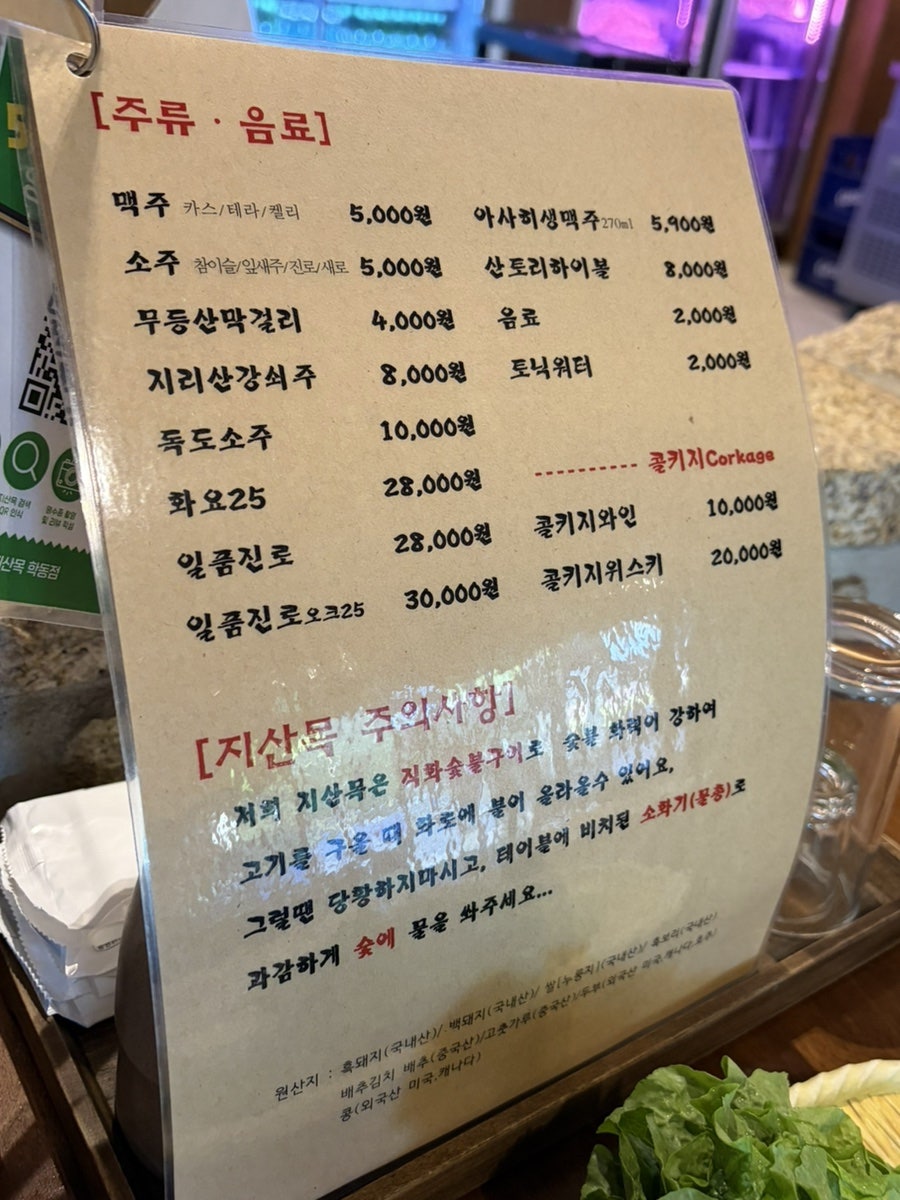 [주류 · 음료]
맥주 카스/테라/켈리 5,000원
소주 참이슬/잎새주/진로/새로 5,000원
무등산막걸리 4,000원
지리산강쇠주 8,000원
독도소주 10,000원
화요25 28,000원
일품진로 28,000원
일품진로오크25 30,000원
아사히생맥주270ml 5,900원
산토리하이볼 8,000원
음료 2,000원
토닉워터 2,000원
---------- 콜키지Corkage
콜키지와인 10,000원
콜키지위스키 20,000원
[지산목 주의사항]
저희 지산목은 직화숯불구이로 숯불 화력이 강하여
고기를 구울 때 화로에 불이 올라올수 있어요,
그럴땐 당황하지마시고, 테이블에 비치된 소화기(물총)로
과감하게 숯에 물을 쏴주세요...
원산지 : 흑돼지(국내산)/ 백돼지(국내산)/ 쌀[누룽지](국내산)/ 흑보리(국내산)
배추김치 배추(중국산)/고춧가루(중국산)/두부(외국산 미국,캐나다,호주)
콩(외국산 미국,캐나다)
지산목 검색
QR 인식
및 리뷰 작성
지산목 학동점